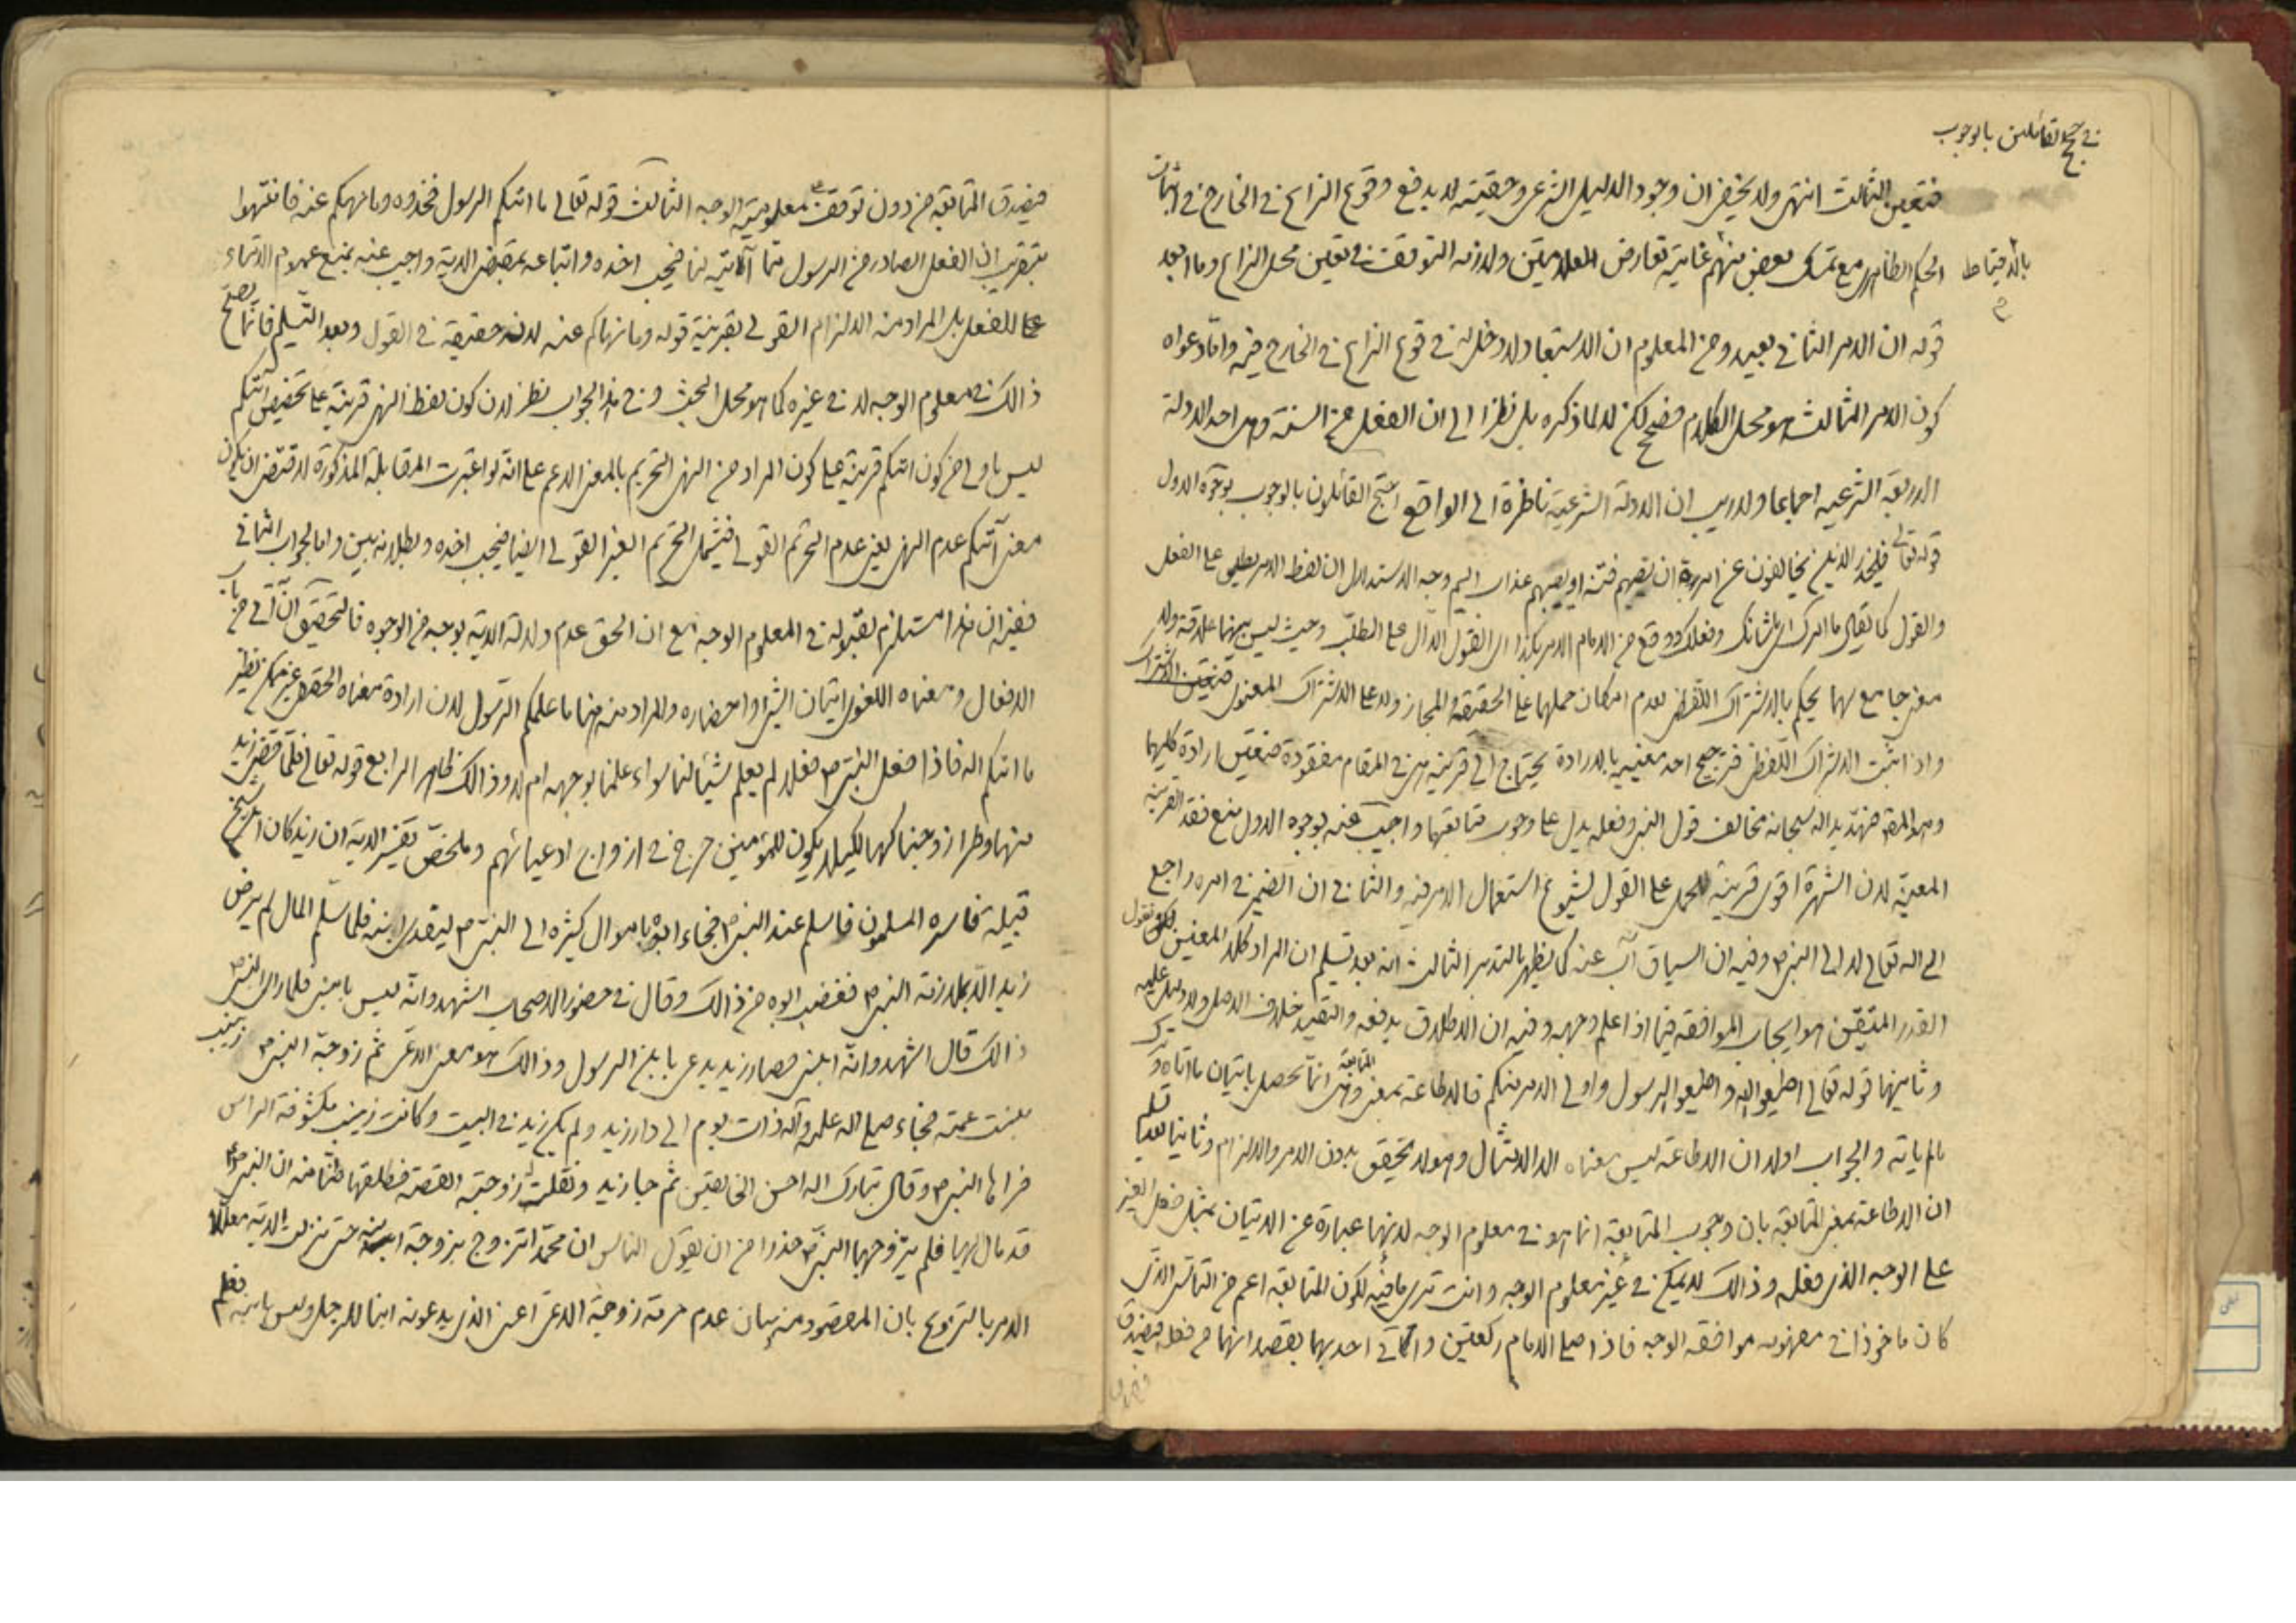 في حجج القائلين بالوجوب
فتعين الثالث انتهى ولا يخفى ان وجود الدليل الشرعي وحقيته لا يدفع وقوع النزاع في الخارج في اثبات
بالاحتياط
الحكم الظاهري مع تمسك بعض منهم غاية تعارض العلامتين ولازمه التوقف في تعين محل النزاع وما ابعد
قوله ان الامر الثاني بعيد ومن المعلوم ان الاستبعاد لا دخل له في وقوع النزاع في الخارج فيه واما دعواه
كون الامر الثالث هو محل الكلام فصحيح لكن لا لما ذكره بل نظرا الى ان الفعل من السنة وهي احد الادلة
الاربعة الشرعيه اجماعا ولا ريب ان الادلة الشرعية ناظرة الى الواقع احتج القائلون بالوجوب بوجوه الاول
قوله تعالى فليحذر الذين يخالفون عن امره ان تصيبهم فتنه او يصيبهم عذاب اليم وجه الاستدلال ان لفظ الامر يطلق على الفعل
والقول كما يقال ما امرك اي ما شانك وفعلك ووقع من الامام الامر بكذا اي القول الدال على الطلب وحيث ليس بينهما علاقة ولا
معنى جامع لهما يحكم بالاشتراك اللفظي لعدم امكان حملهما على الحقيقة والمجاز ولا على الاشتراك المعنوي
واذا ثبت الاشتراك اللفظي فترجيح احد معنييه بالارادة يحتاج الى قرينه هي في المقام مفقودة فتعين ارادة كليهما
وهو المدعى فتهديد الله سبحانه مخالف قول النبي وفعله يدل على وجوب متابعتهما واجيب عنه بوجوه الاول منع فقد القرينه
المعينه لان الشهرة اقوى قرينه للحمل على القول لشيوع استعمال الامر فيه والثاني ان الضمير في امره راجع
الى الله تعالى لا الى النبي ص وفيه ان السياق آب عنه كما يظهر بالتدبر الثالث انه بعد تسليم ان المراد كلا المعنيين لكن نقول
القدر المتيقن هو ايجاب الموافقه فيما اذا علم وجهه وفيه ان الاطلاق يدفعه والتقييد خلاف الاصل ولا دليل عليه
وثانيها قوله تعالى اطيعوا الله واطيعوا الرسول واولي الامر منكم فالاطاعة بمعنى المتابعة وهي انما تحصل باتيان ما اتاه وترك
ما لم ياته والجواب اولا ان الاطاعة ليس معناه الا الامتثال وهو لا يتحقق بدون الامر والالزام وثانيا بعد تسليم
ان الاطاعة بمعنى المتابعه بان وجوب المتابعة انما هو في معلوم الوجه لانها عبارة عن الاتيان بمثل فعل الغير
على الوجه الذي فعله وذلك لا يمكن في غير معلوم الوجه وانت تدري ما فيه لكون المتابعه اعم من التاسي الذي
كان ماخوذا في مفهومه موافقه الوجه فاذا صلى الامام ركعتين واتى احد بهما بقصد انهما من فعله فيصدق
فيصدق المتابعة من دون توقف معلومية الوجه الثالث قوله تعالى ما اتيكم الرسول فخذوه وما نهيكم عنه فانتهوا
بتقريب ان الفعل الصادر من الرسول مما آتانيه لنا فيجب اخذه واتباعه بمقتضى الاية واجيب عنه بمنع عموم الايتاء
على للفعل بل المراد منه الالزام القولي بقرينة قوله وما نهاكم عنه لانه حقيقة في القول وبعد التسليم فانما يصح
ذالك في معلوم الوجه لا في غيره كما هو محل البحث وفي هذا الجواب نظر لان كون لفظ النهي قرينة على تخصيص آتيكم
ليس باولى من كون اتيكم قرينة على كون المراد من النهي التحريم بالمعنى الاعم على انه لو اعتبرت المقابلة المذكورة لاقتضى ان يكون
معنى آتيكم عدم النهي يعني عدم التحريم القولي فيشمل التحريم الغير القولي ايضا فيجب اخذه وبطلانه بين واما الجواب الثاني
ففيه ان هذا مستلزم لقبوله في المعلوم الوجه مع ان الحق عدم دلالة الاية بوجه من الوجوه فالتحقيق ان آتى من باب
الافعال ومعناه اللغوي اتيان الشئ واحضاره والمراد منه هنا ما علمكم الرسول لان ارادة معناه الحقيقي غير ممكن نظير
ما اتيكم الله فاذا فعل النبي ص فعلا لم يعلم شيئا لنا سواء علمنا بوجهه ام لا وذالك ظاهر الرابع قوله تعالى فلما قضى زيد
منها وطرا زوجنا كها لكيلا يكون للمؤمنين حرج في ازواج ادعيائهم وملخص تفسير الاية ان زيد كان ابن شيخ
قبيلة فاسره المسلمون فاسلم عند النبي ص فجاء ابوه باموال كثيره الى النبي ص ليفدي ابنه فلما سلم المال لم يرض
زيد الا بملازمة النبي ص فغضب ابوه من ذالك وقال في حضور الاصحاب اشهدوا انه ليس بابني فلما راى النبي ص
ذالك قال اشهدوا انه ابني فصار زيد يدعى بابن الرسول وذالك هو معنى الدعي ثم زوجه النبي ص زينب
بنت عمته فجاء صلى الله عليه وآله ذات يوم الى دار زيد ولم يكن زيد في البيت وكانت زينب مكشوفة الراس
فراها النبي ص وقال تبارك الله احسن الخالقين ثم جاء زيد ونقلت زوجته القصة فطلقها ظنا منه ان النبي ص
قد مال اليها فلم يتزوجها النبي ص حذرا من ان يقول الناس ان محمدا تزوج بزوجة ابنه حتى نزلت الاية معللا
الامر بالتزويج بان المقصود منه بيان عدم حرمة زوجة الدعي اعني الذي يدعونه ابنا للرجل وليس بابنه فعلم